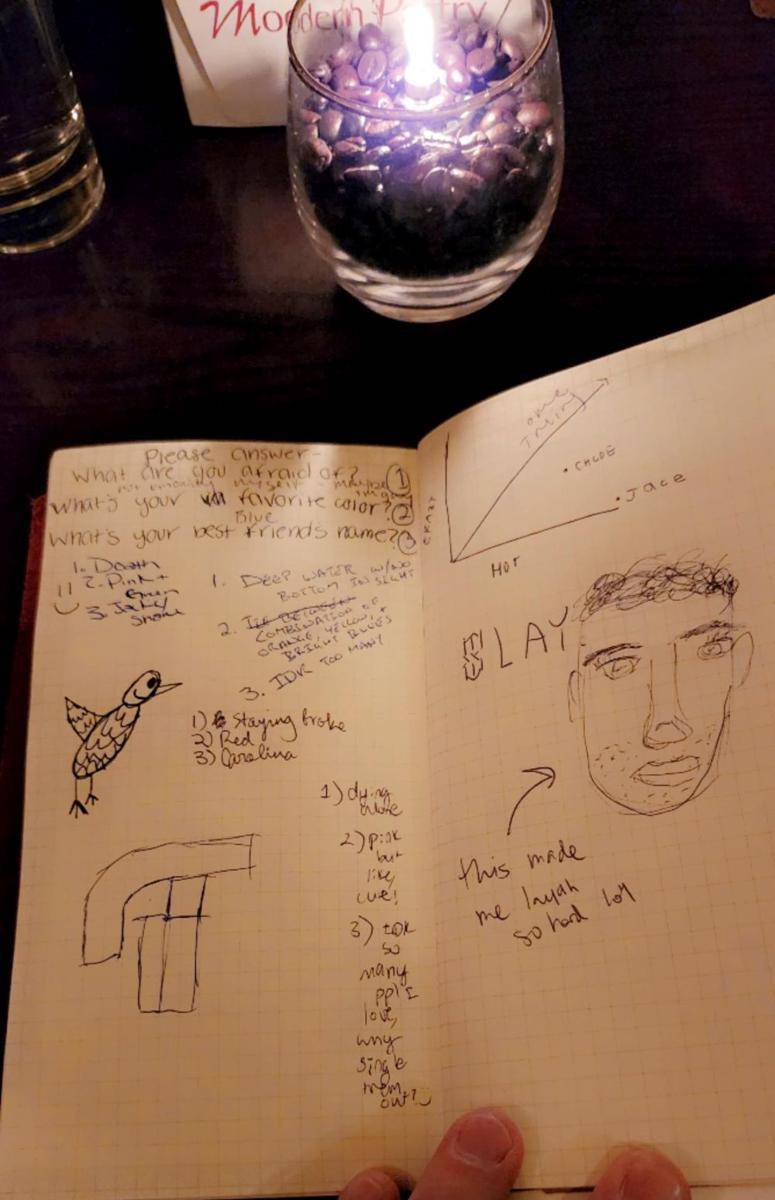 Modern Pastry
Please answer-
What are you afraid of? 1
myself
What's your favorite color? 2
Blue
What's your best friends name? 3
1. Death
2. Pink +
Green
3.
1. DEEP WATER W/NO
BOTTOM IN SIGHT
2.
COMBINATION OF
ORANGE, YELLOW, +
BRIGHT BLUES
3. IDK TOO MANY
1) Staying broke
2) Red
3) Carolina
1) dying
alone
2) pink
but
like,
cute!
3) IDK
so
many
ppl I
love,
why
single
them
out?
CRAZY
HOT
CHLOE
Jace
SLAY
this made
me laugh
so hard lol